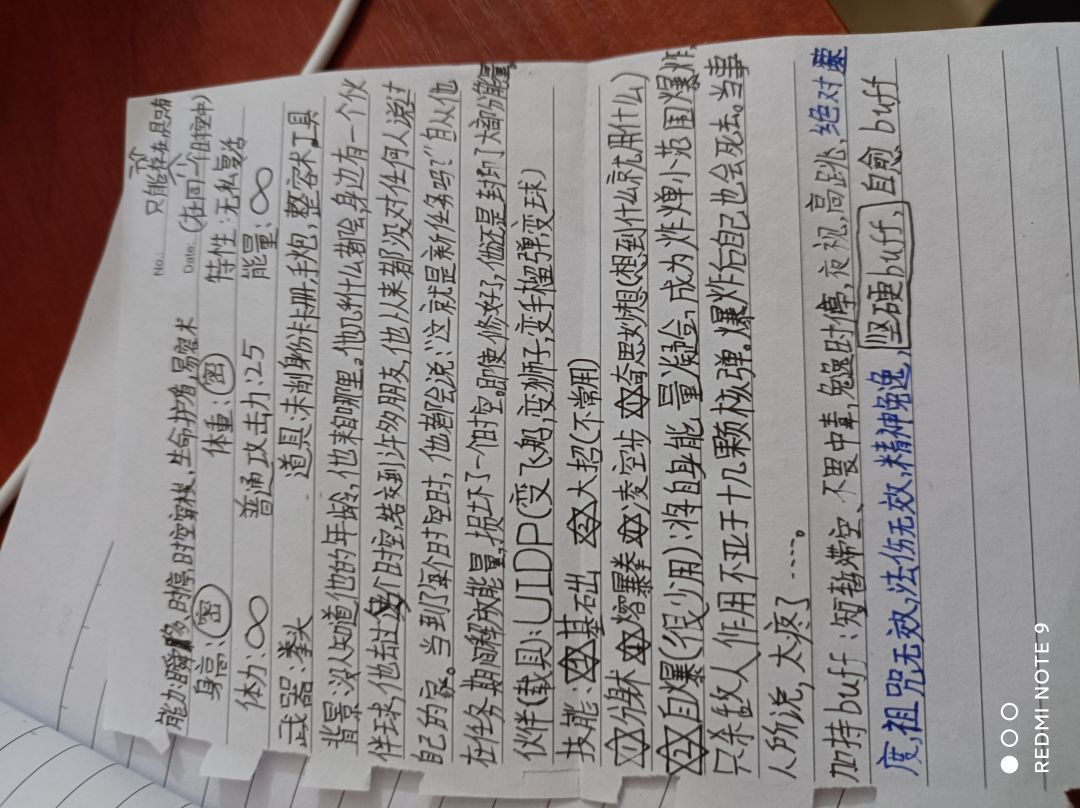 只能存在且只有
No.:
Date.
(在同一个时空中)
能力:瞬移,时停,时空穿梭,生命护盾,易容术
身高:密 体重:密 特性:无私复活
体力:∞ 普通攻击力:25 能量:∞
武器:拳头 道具:未湖身份卡册,手炮,整容术工具
背景:没人知道他的年龄,他来自哪里。他几乎什么都会,身边有一个伙
伴球,他去过多个时空结交到许多朋友,他从来都没对任何人说过
自己的家。当到了每个时空时,他都会说:"这就是新任务吗?"自从他
在任务期间释放能量,损坏了一个时空。即使修好了,他还是封印了大部分能量。
伙伴(载具):UIDP(变飞船,变狮子,变手榴弹,变球)
技能:①基础 ②大招(不常用)
①分身术 ①熔暴拳 ①凌空步 ①奇思妙想(想到什么就用什么)
②自爆(很少用):将自身能量凝绘,成为炸弹小范围爆炸,
只杀敌人作用不亚于十几颗核弹。爆炸后自己也会死去。当事
人所说,太疼了……。
加持buff:短暂滞空、不畏中毒,免疫时停,夜视,高跳,绝对
度,祖咒无效,法伤无效,精神免逸,坚硬buff,自愈buff
REDMI NOTE 9